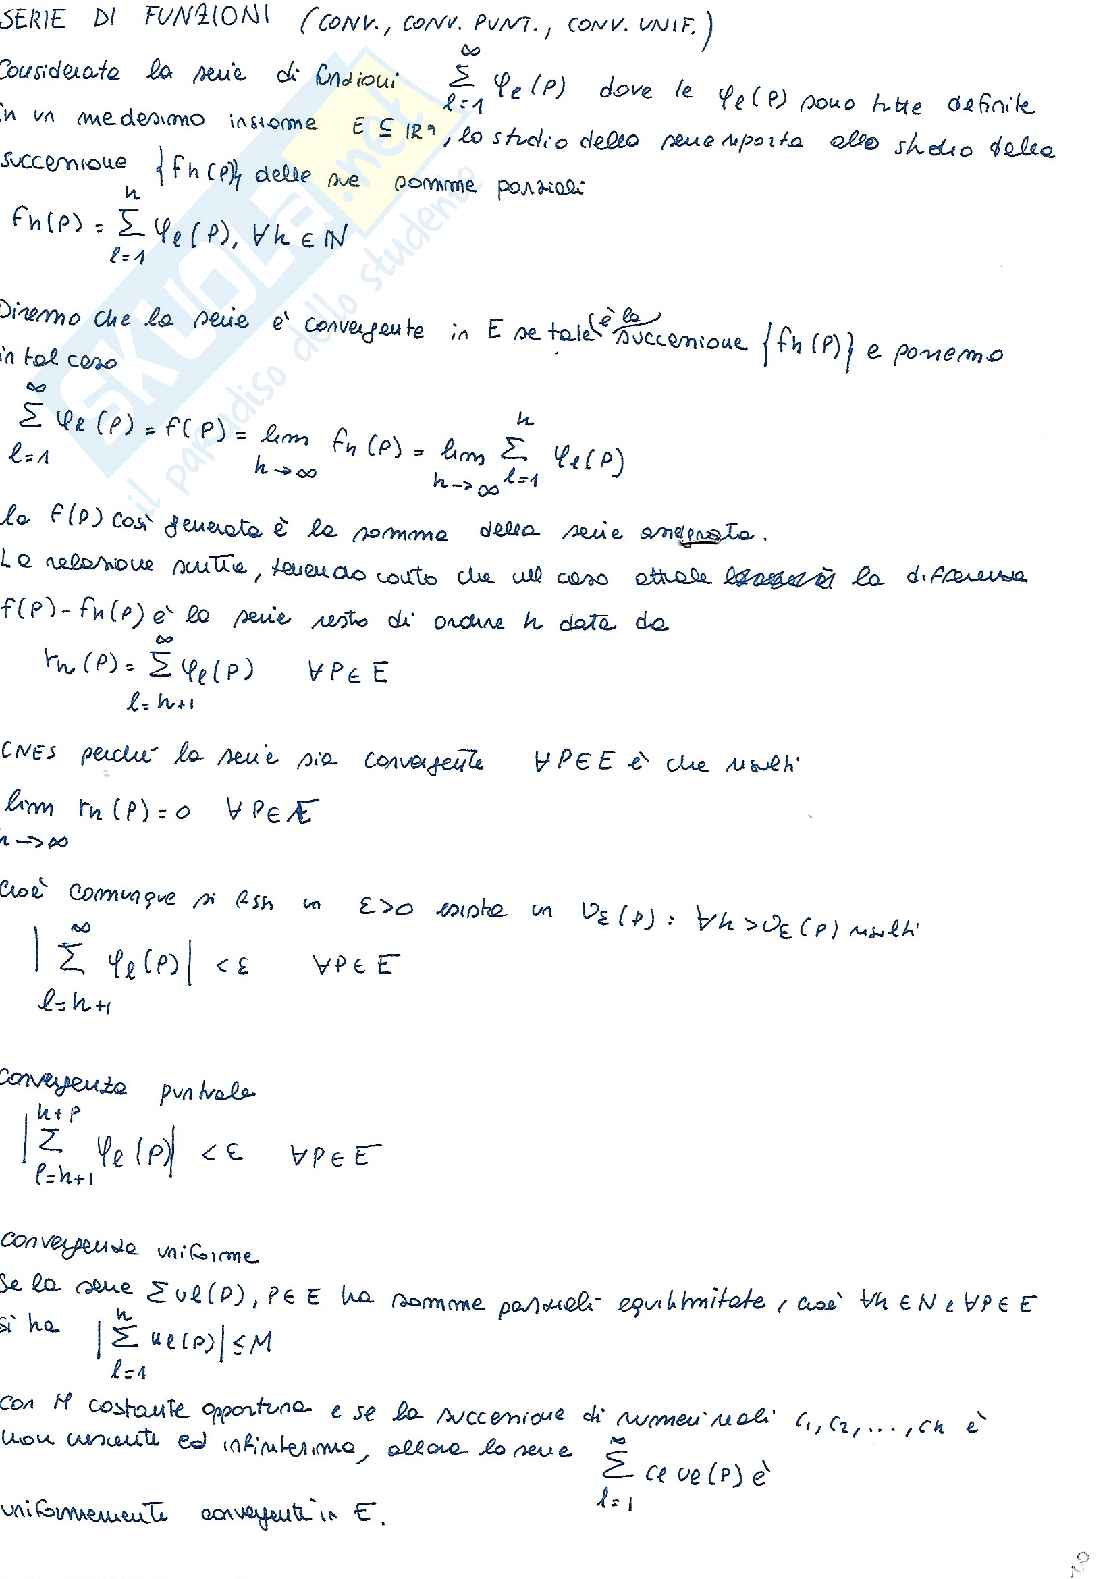 SERIE DI FUNZIONI (CONV., CONV. PUNT., CONV. UNIF.)
Considerata la serie di funzioni ∞∑l=1 φl(P) dove le φl(P) sono tutte definite
in un medesimo insieme E ⊆ ℝⁿ, lo studio della serie riporta allo studio della
successione {fn(P)} delle sue somme parziali
fn(P) = n∑l=1 φl(P), ∀n ∈ N
Diremo che la serie è convergente in E se tale è la successione {fn(P)} e porremo
in tal caso
∞∑l=1 φl(P) = f(P) = lim n→∞ fn(P) = lim n→∞ n∑l=1 φl(P)
la f(P) così generata è la somma della serie assegnata.
La relazione scritta, tenendo conto che nel caso attuale la differenza
f(P) - fn(P) è la serie resto di ordine n data da
rn(P) = ∞∑l=n+1 φl(P) ∀P∈E
CNES perché la serie sia convergente ∀P∈E è che risulti
lim n→∞ rn(P) = 0 ∀P∈E
cioè comunque si fissi un ε>0 esiste un νε(P): ∀n>νε(P) risulti
|∞∑l=n+1 φl(P)| < ε ∀P∈E
convergenza puntuale
|n+p∑l=n+1 φl(P)| < ε ∀P∈E
convergenza uniforme
Se la serie ∑ul(P), P∈E ha somme parziali equilimitate, cioè ∀n∈N e ∀P∈E
si ha |n∑l=1 ul(P)| ≤ M
con M costante opportuna e se la successione di numeri reali c1, c2, ..., cn è
non crescente ed infinitesima, allora la serie ∞∑l=1 cl ul(P) è
uniformemente convergente in E.
SKUOLA.net
il paradiso dello studente